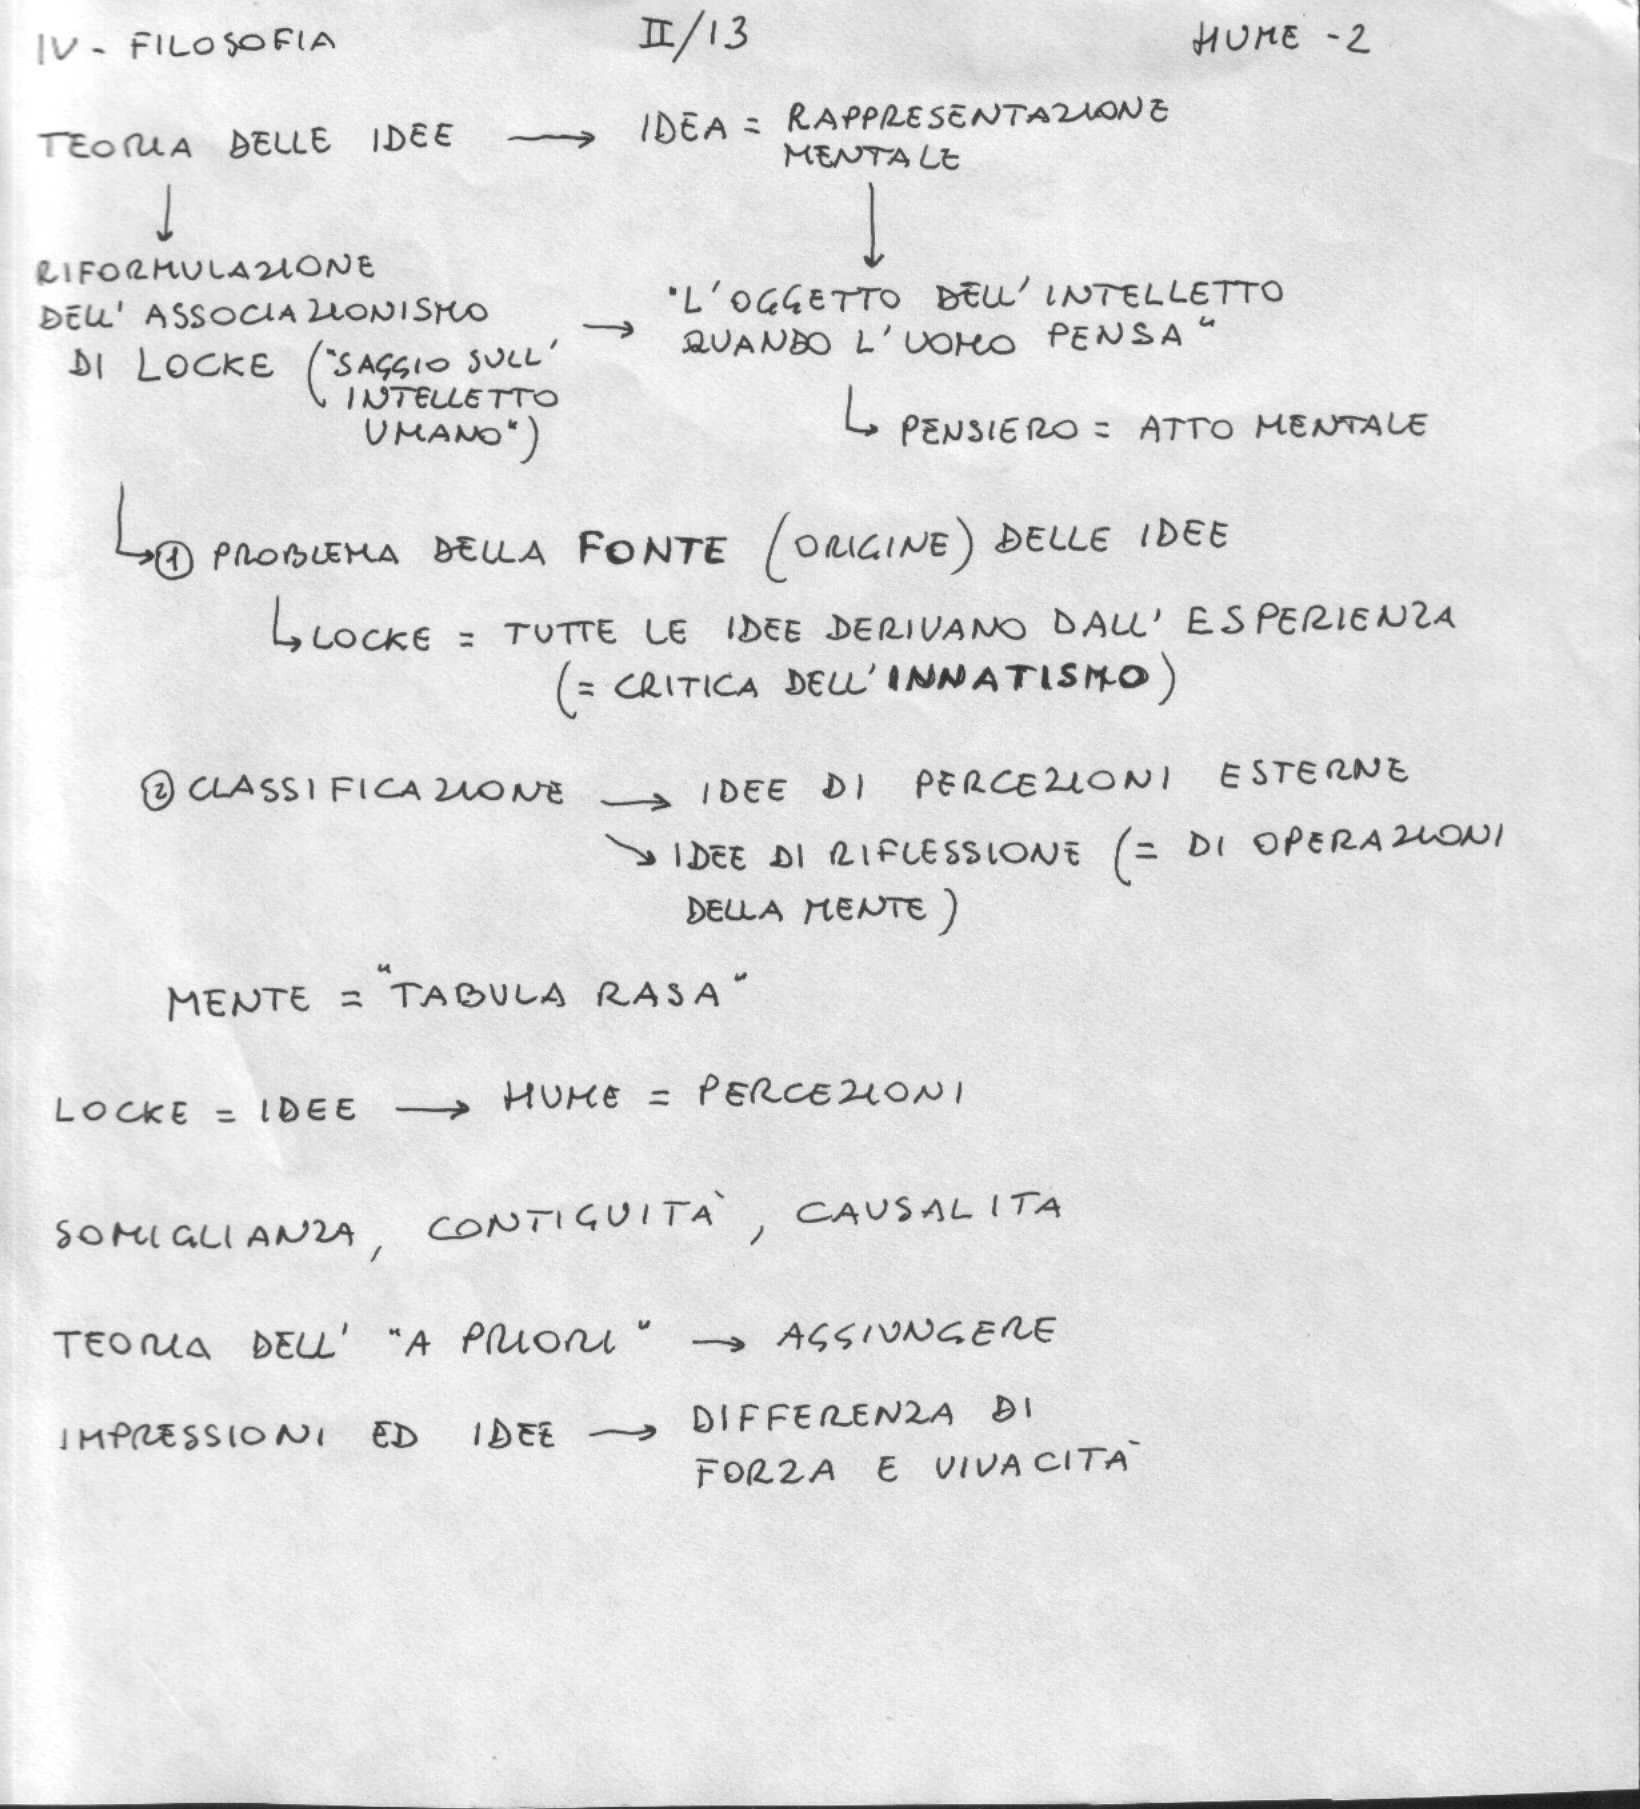 IV - FILOSOFIA II/13 HUME - 2
TEORIA DELLE IDEE → IDEA = RAPPRESENTAZIONE
MENTALE
↓ ↓
RIFORMULAZIONE
DELL' ASSOCIAZIONISMO → "L'OGGETTO DELL'INTELLETTO
DI LOCKE ("SAGGIO SULL' QUANDO L'UOMO PENSA"
INTELLETTO
UMANO") ↳ PENSIERO = ATTO MENTALE
↳ ① PROBLEMA DELLA FONTE (ORIGINE) DELLE IDEE
↳ LOCKE = TUTTE LE IDEE DERIVANO DALL'ESPERIENZA
(= CRITICA DELL'INNATISMO)
② CLASSIFICAZIONE → IDEE DI PERCEZIONI ESTERNE
↘ IDEE DI RIFLESSIONE (= DI OPERAZIONI
DELLA MENTE)
MENTE = "TABULA RASA"
LOCKE = IDEE → HUME = PERCEZIONI
SOMIGLIANZA, CONTIGUITÀ, CAUSALITA
TEORIA DELL' "A PRIORI" → AGGIUNGERE
IMPRESSIONI ED IDEE → DIFFERENZA DI
FORZA E VIVACITÀ